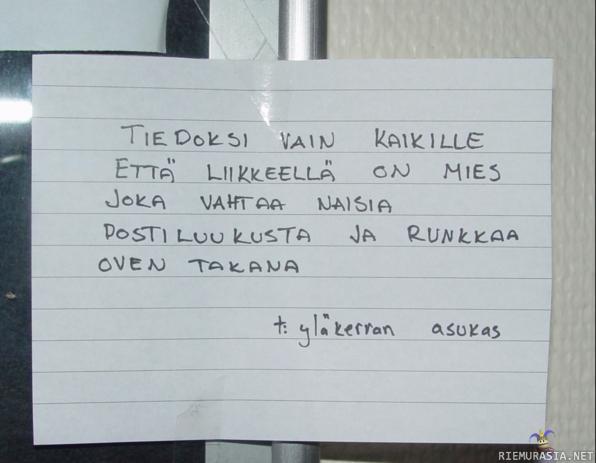 TIEDOKSI VAIN KAIKILLE
ETTÄ LIIKKEELLÄ ON MIES
JOKA VAHTAA NAISIA
POSTILUUKUSTA JA RUNKKAA
OVEN TAKANA
t: yläkerran asukas
RIEMURASIA.NET